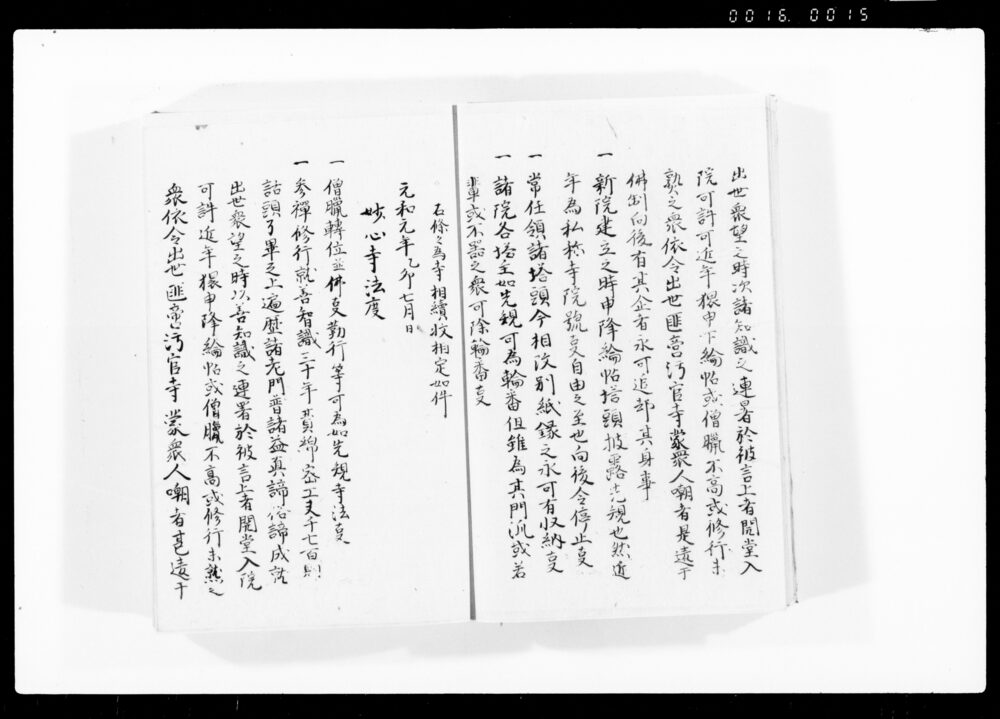 0016. 0015
出世衆望之時次諸知識之連署於被言上者開堂入
院可許可近年猥申下綸帖或僧臈不高或修行未
熟之衆依令出世匪啻汚官寺蒙衆人嘲者是違于
佛制向後有其企者永可追却其身事
一 新院建立之時申降綸帖塔頭披露先規也然近
年為私称寺院號叓自由之至也向後令停止叓
一 常住領諸塔頭今相改別紙録之永可有収納叓
一 諸院各塔主如先規可為輪番但雖為其門派或若
輩或不器之衆可除輪番叓
右條々為寺相續收相定如件
元和元年乙卯七月日
妙心寺法度
一 僧臈轉位並佛叓勤行等可為如先規寺法叓
一 参禪修行就善知識三十年費綿密工夫千七百則
話頭了畢之上遍歴諸老門普請益真諦俗諦成就
出世衆望之時以善知識之連署於被言上者開堂入院
可許近年猥申降綸帖或僧臈不高或修行未熟之
衆依令出世匪啻汚官寺蒙衆人嘲者甚違于